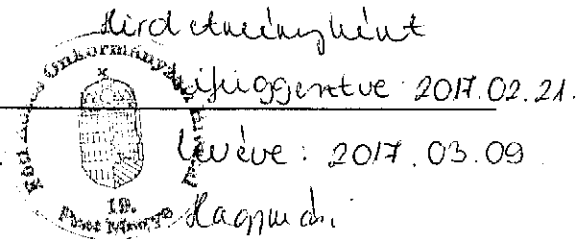 Hirdetményként
kifüggesztve 2017.02.21.
Levéve: 2017.03.09
Önkormányz
19.
Pest Megye